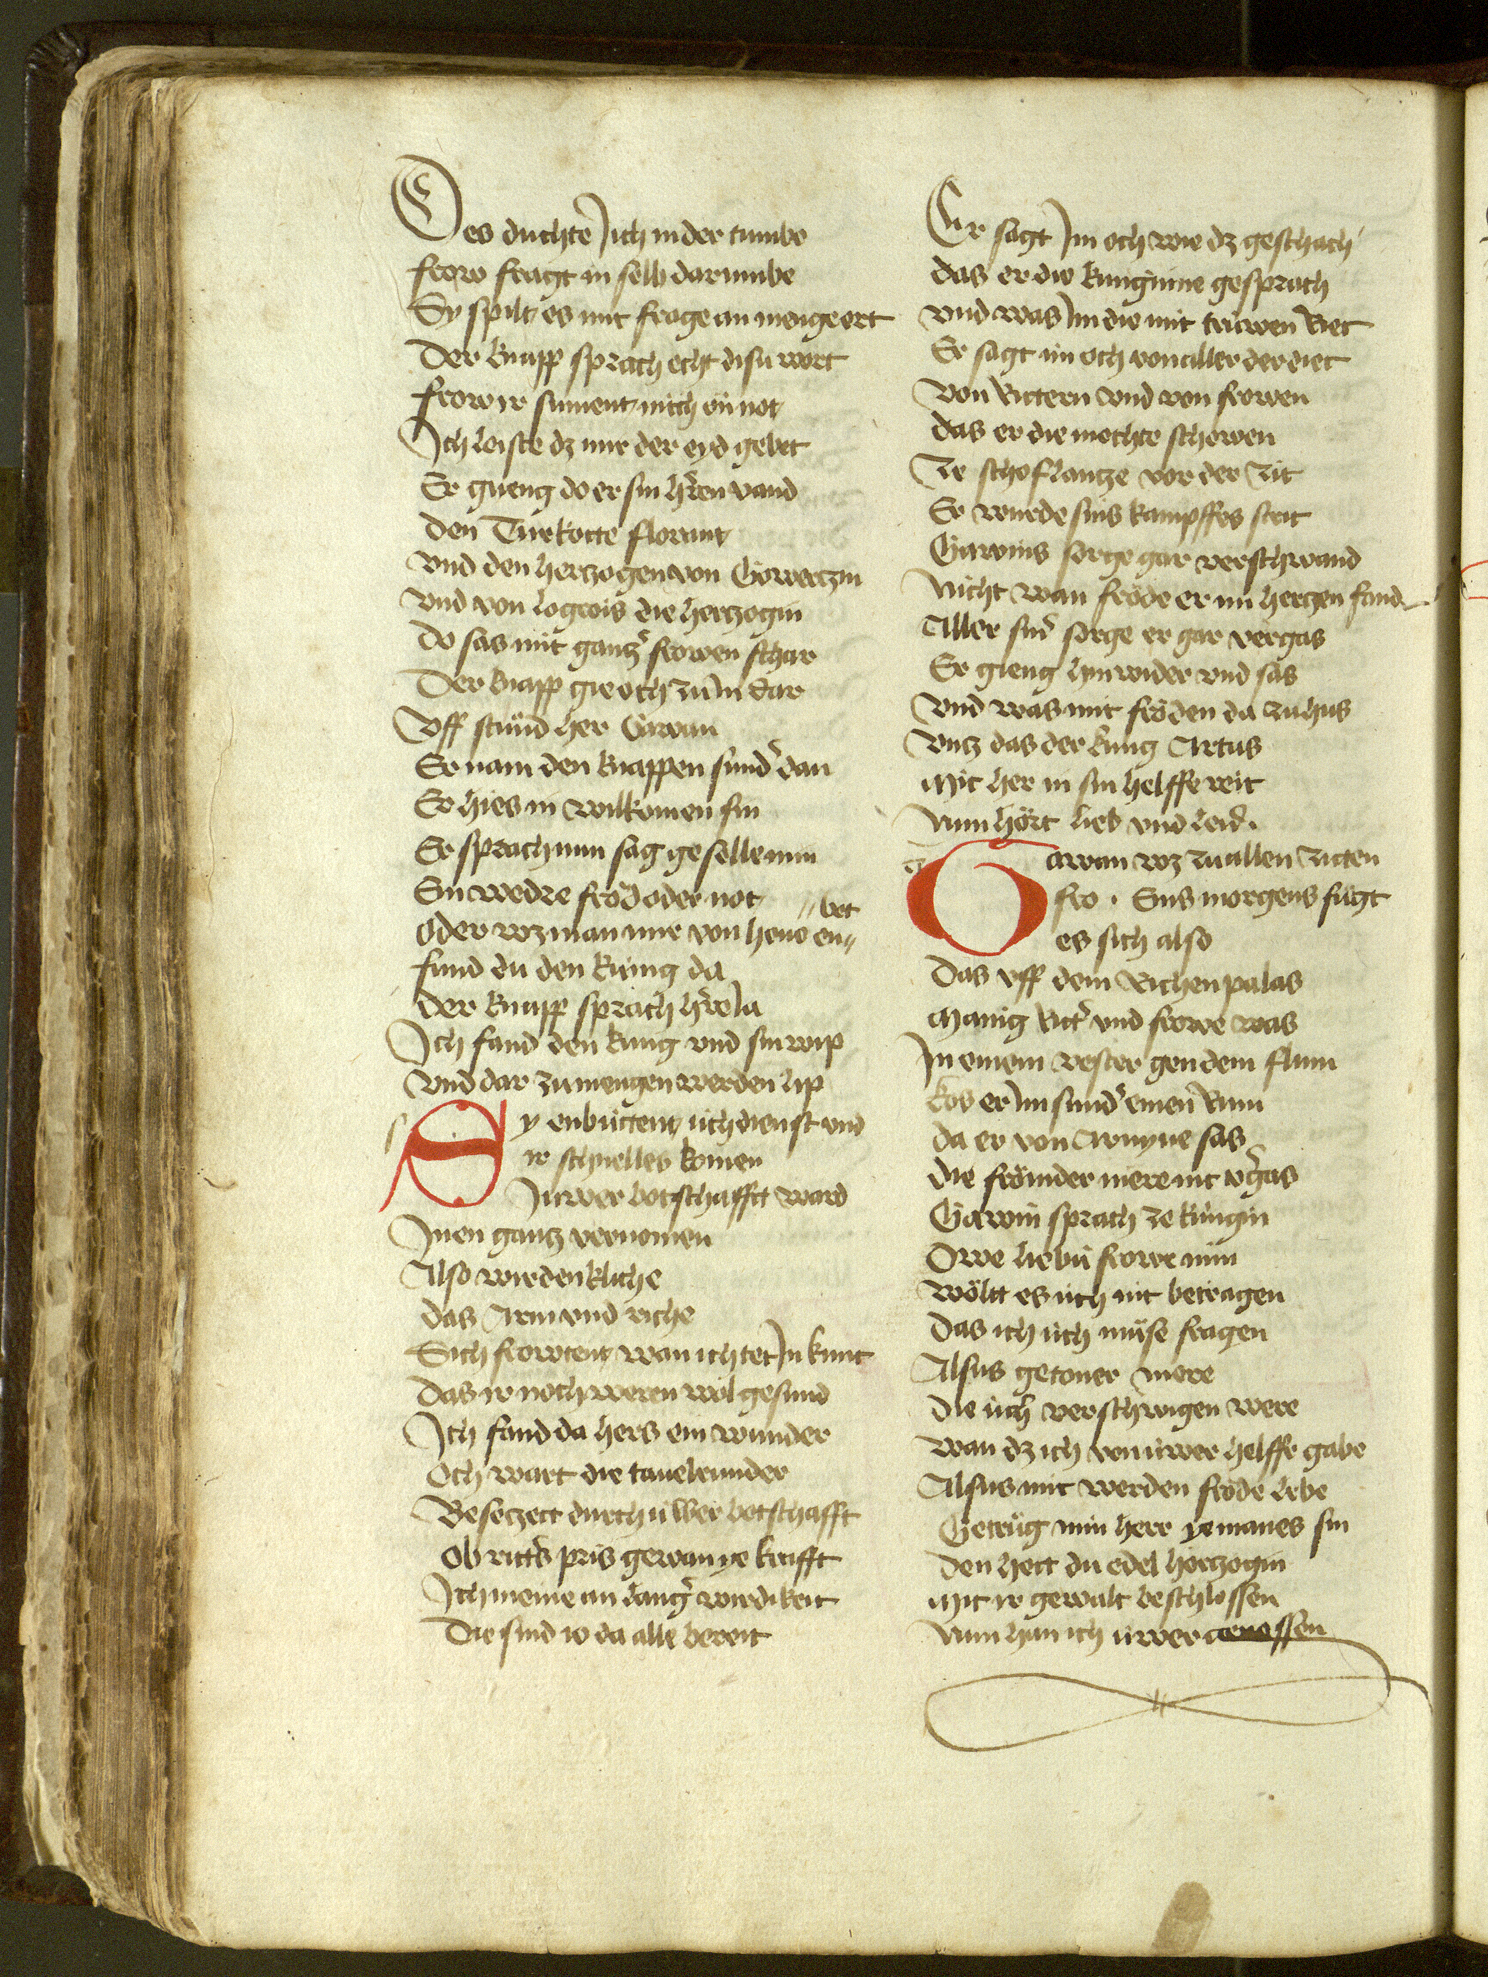 Des duchte Jch in der tumbe
frow fragt in selb darumbe
Sy spilt es mit frage an menge ort
Der knapp sprach echt disu wort
frow ir sument mich ön not
Jch leiste dz mir der eyd gebot
Er gueng do er sin h'ren vand
den Turkotte florant
vnd den hertzogen von Gowertzin
vnd von logrois die hertzogin
do sas mit gantz' frowen schar
Der knapp gie och zu Jn dar
Vff stünd her Gawan
Er nam den knappen sund' dan
Er hies in wilkomen sin
Er sprach nun sag geselle min
Ein wedre fröd oder not
oder wz man mir von houe en//
// bot
fund du den küng da
der knapp sprach h're Ja
Jch fand den küng vnd sin wip
vnd dar zu mengen werden lip
Sy enbüttent üch dienst vnd
ir schnelles komen
Juwer botschafft ward
Jnen gantz vernomen
Also wirdenkliche
das Arm vnd riche
Sich frowtent wan ich tet Jn kunt
das ir noch weren wol gesund
Jch fand da hers ein wunder
Och wart die tauelrunder
Besetzett durch üwer botschafft
Ob ritt's pris gewan ye krafft
Jch meine an dang' wirdikeit
Die sind ir da alle bereit
Er sagt Jm och wie dz geschach
das er die kunginne gesprach
vnd was Jm die mit trüwen Riet
Er sagt im och von aller der diet
von Rittern vnd von frowen
das er die mochte schowen
Ze schoflantze vor der zit
Er wurde sins kampffes strit
Gawins sorge gar verschwand
Nicht wan fröde er im hertzen fand
Aller sin' sorge er gar vergas
Er gieng hin wider vnd sas
vnd was mit fröden da zu hus
vntz das der küng Artus
Mit her in sin helffe reit
Nun hört lieb vnd leid.
Gawan wz zu allen zitten
fro. Eins morgens fügt
es sich also
Das vff dem Richen palas
Manig Ritt' vnd frowe was
Jn einem vester gen dem flum
kos er Jm sund' einen Rum
da er von Arnyue sas
die frömder mere nit v'gas
Gawin sprach ze küngin
Owe liebü frowe min
wöltt es üch nit betragen
das ich üch müse fragen
Alsus getoner mere
die üch verschwigen were
wan dz ich von üwer helffe gabe
Alsus mit werden fröde lebe
Getrüg min herr yemanes sin
den hett du edel hertzogin
mit ir gewalt beschlossen
Nun han ich üwer genossen